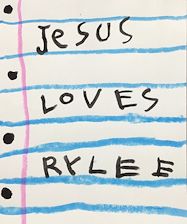 JeSUS
LOVES
RYLEE